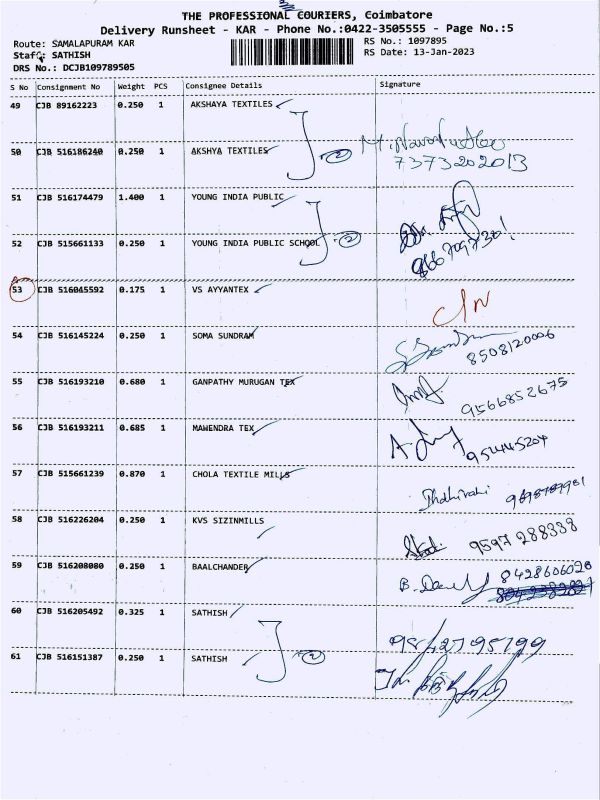 THE PROFESSIONAL COURIERS, Coimbatore
Delivery Runsheet - KAR - Phone No.:0422-3505555 - Page No.:5
Route: SAMALAPURAM KAR RS No.: 1097895
Staff: SATHISH RS Date: 13-Jan-2023
DRS No.: DCJB109789505
S No Consignment No Weight PCS Consignee Details Signature
49 CJB 89162223 0.250 1 AKSHAYA TEXTILES
50 CJB 516186240 0.250 1 AKSHYA TEXTILES 2 7373202013
51 CJB 516174479 1.400 1 YOUNG INDIA PUBLIC
52 CJB 515661133 0.250 1 YOUNG INDIA PUBLIC SCHOOL 2
53 CJB 516045592 0.175 1 VS AYYANTEX
54 CJB 516145224 0.250 1 SOMA SUNDRAM 8508120006
55 CJB 516193210 0.680 1 GANPATHY MURUGAN TEX 9566852675
56 CJB 516193211 0.685 1 MAWENDRA TEX
57 CJB 515661239 0.870 1 CHOLA TEXTILE MILLS
58 CJB 516226204 0.250 1 KVS SIZINMILLS 9597288338
59 CJB 516208080 0.250 1 BAALCHANDER 8428606020
60 CJB 516205492 0.325 1 SATHISH
61 CJB 516151387 0.250 1 SATHISH 2